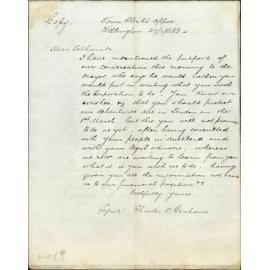 Copy
Town Clerk's Office
Wellington 27/1/1883
Dear Tolhurst
I have mentioned the purport of
our conversation this morning to the
Mayor who says he would rather you
would put in writing what you wish
the Corporation to do. You know our
wishes, that you should protect
our debentures in London on the
1st March, but this you will not promise
to do as yet, after having consulted
with your people in Auckland and
with your legal advisers, whereas
we also are waiting to learn from you
what it is you wish us to do, having
given you all the information we have
as to our financial position &c
Faithfully yours
Charles C Graham